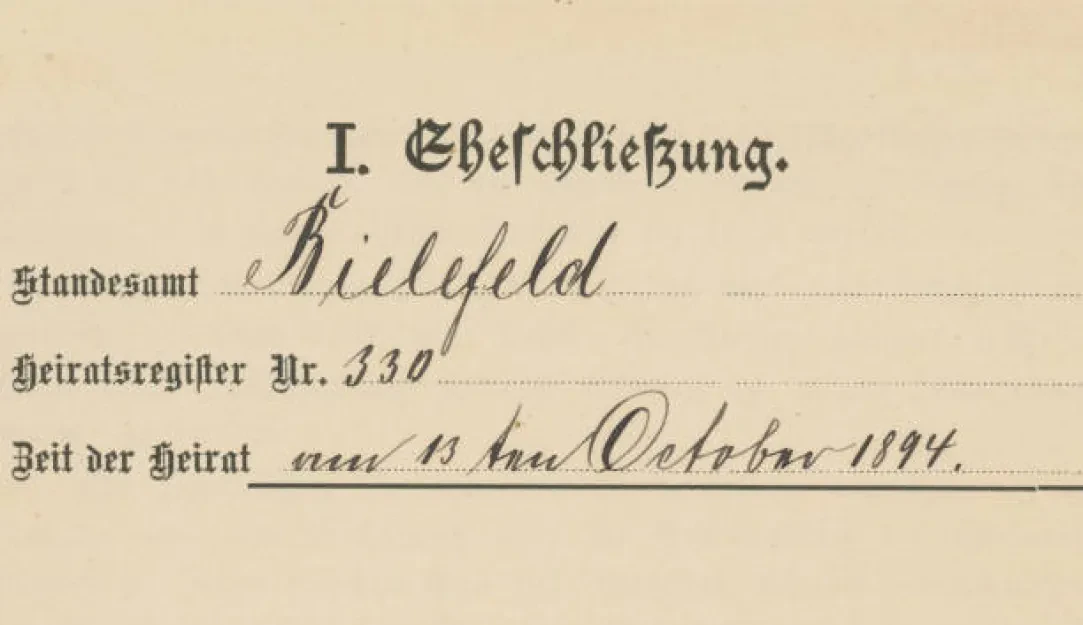 I. Eheschließung.
Standesamt Bielefeld
Heiratsregister Nr. 330
Zeit der Heirat am 13ten October 1894.